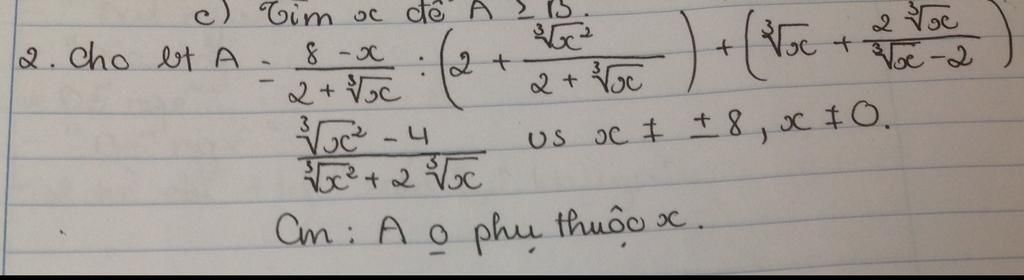 c) Tìm x để A ≥ 13.
2. Cho bt A = \frac{8 - x}{2 + \sqrt[3]{x}} : \left(2 + \frac{\sqrt[3]{x^2}}{2 + \sqrt[3]{x}}\right) + \left(\sqrt[3]{x} + \frac{2\sqrt[3]{x}}{\sqrt[3]{x} - 2}\right)
\frac{\sqrt[3]{x^2} - 4}{\sqrt[3]{x^2} + 2\sqrt[3]{x}} vs x ≠ ± 8, x ≠ 0.
Cm : A o phụ thuộc x.